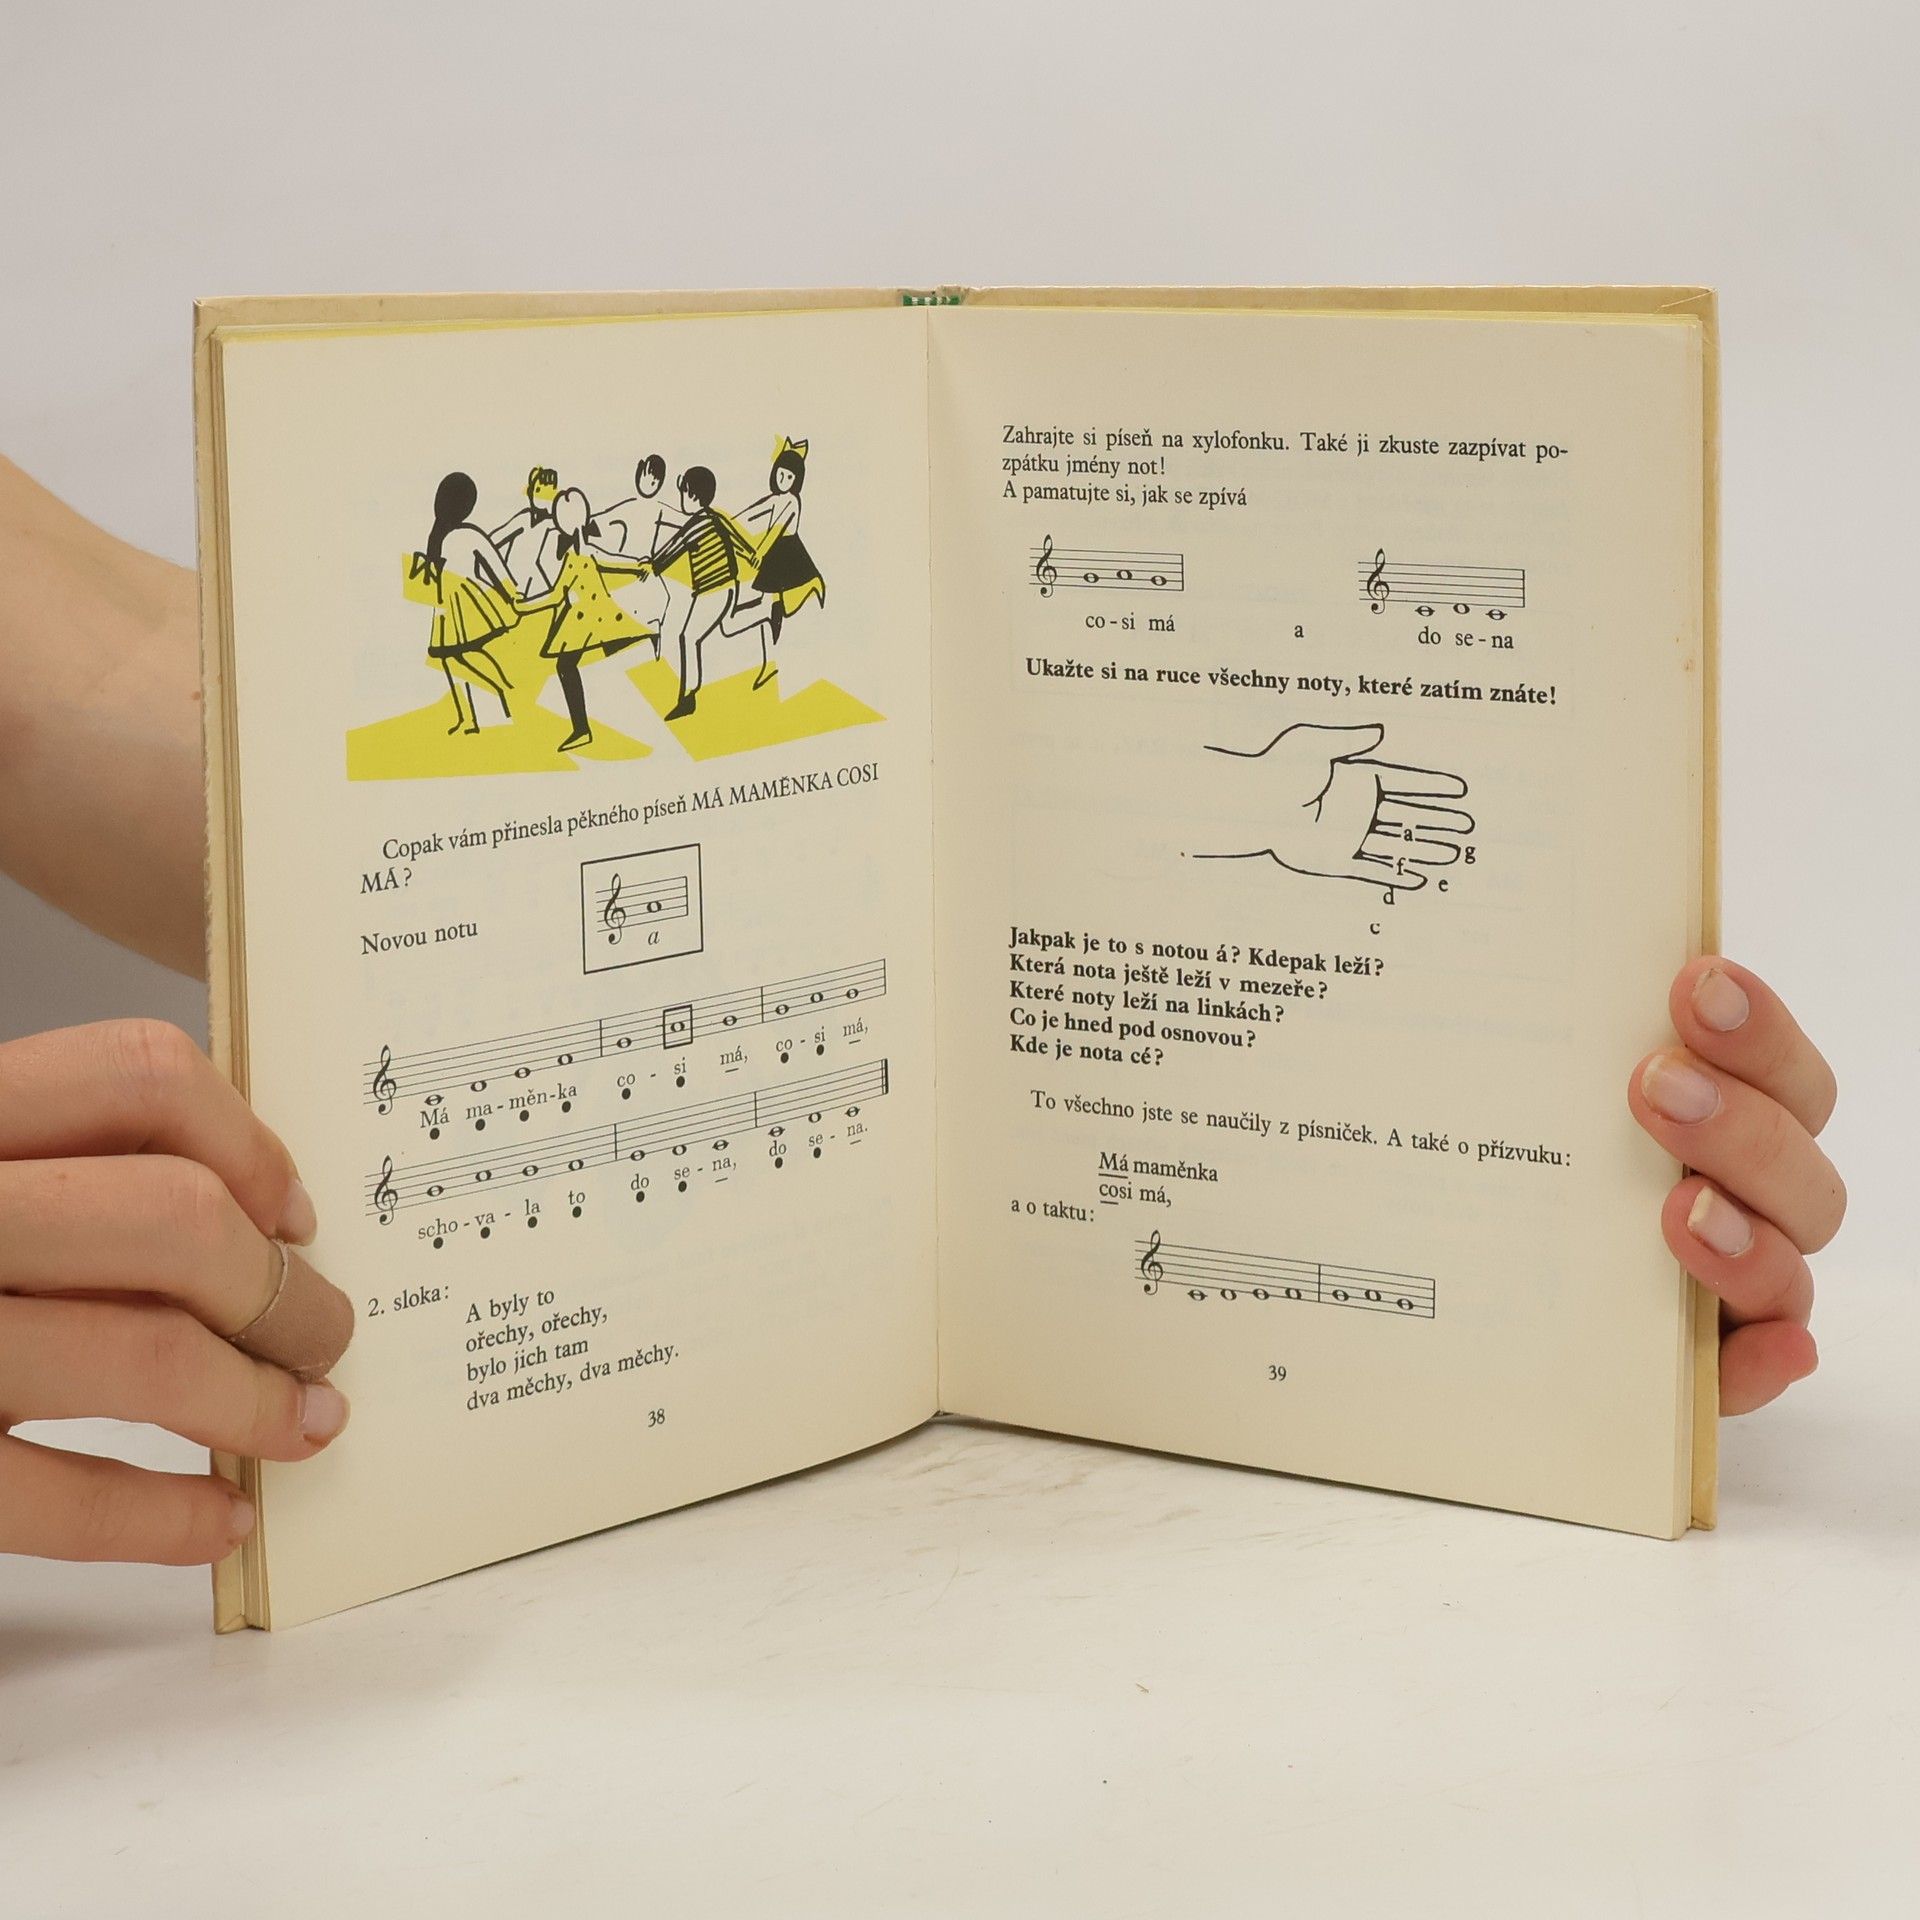 Copak vám přinesla pěkného píseň MÁ MAMĚNKA COSI
MÁ?
Novou notu
a
Má ma-měn-ka co - si má, co - si má,
scho-va - la to do se - na, do se - na.
2. sloka:
A byly to
ořechy, ořechy,
bylo jich tam
dva měchy, dva měchy.
38
Zahrajte si píseň na xylofonku. Také ji zkuste zazpívat po-
zpátku jmény not!
A pamatujte si, jak se zpívá
co-si má a do se-na
Ukažte si na ruce všechny noty, které zatím znáte!
a
g
f
e
d
c
Jakpak je to s notou á? Kdepak leží?
Která nota ještě leží v mezeře?
Které noty leží na linkách?
Co je hned pod osnovou?
Kde je nota cé?
To všechno jste se naučily z písniček. A také o přízvuku:
Má maměnka
cosi má,
a o taktu:
39